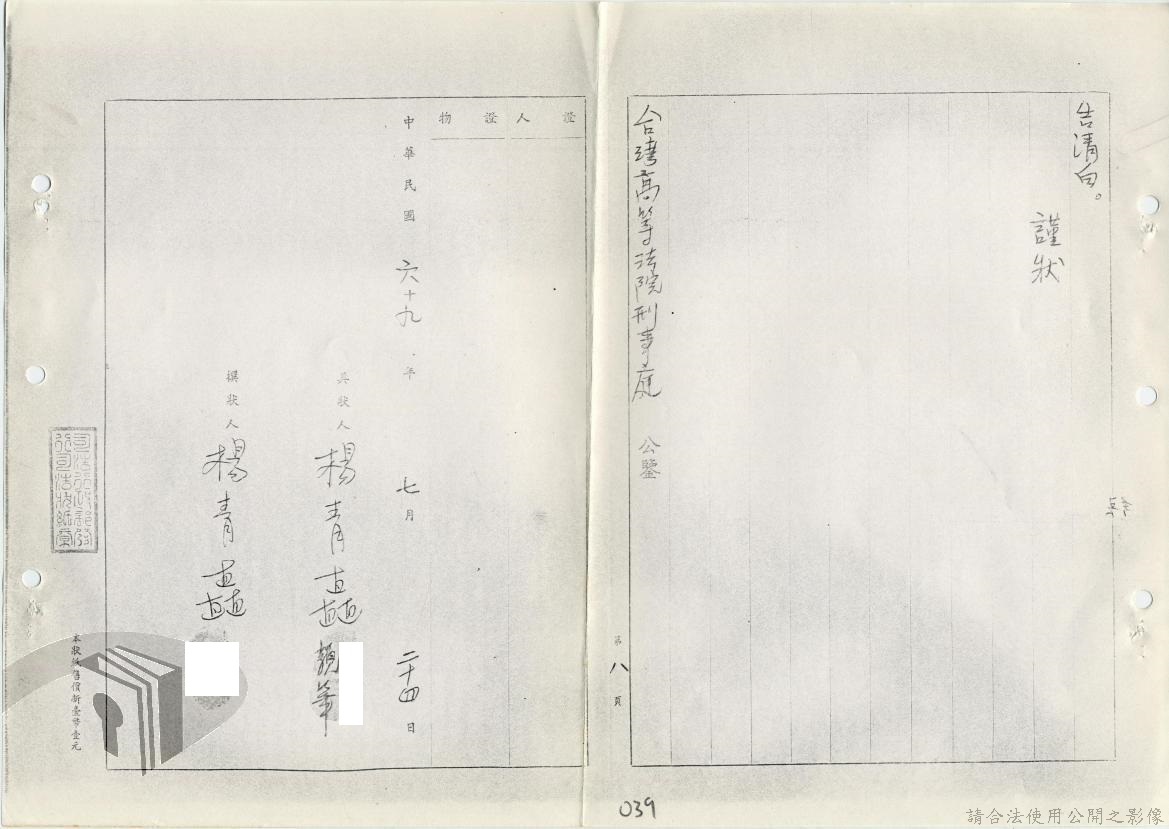 告清白。
謹狀
台灣高等法院刑事庭 公鑒
第八頁
證人
證物
中華民國六十九年七月二十四日
具狀人 楊青矗
撰狀人 楊青矗
司法行政部發
行司法狀紙章
本狀紙售價新臺幣壹元
039
請合法使用公開之影像